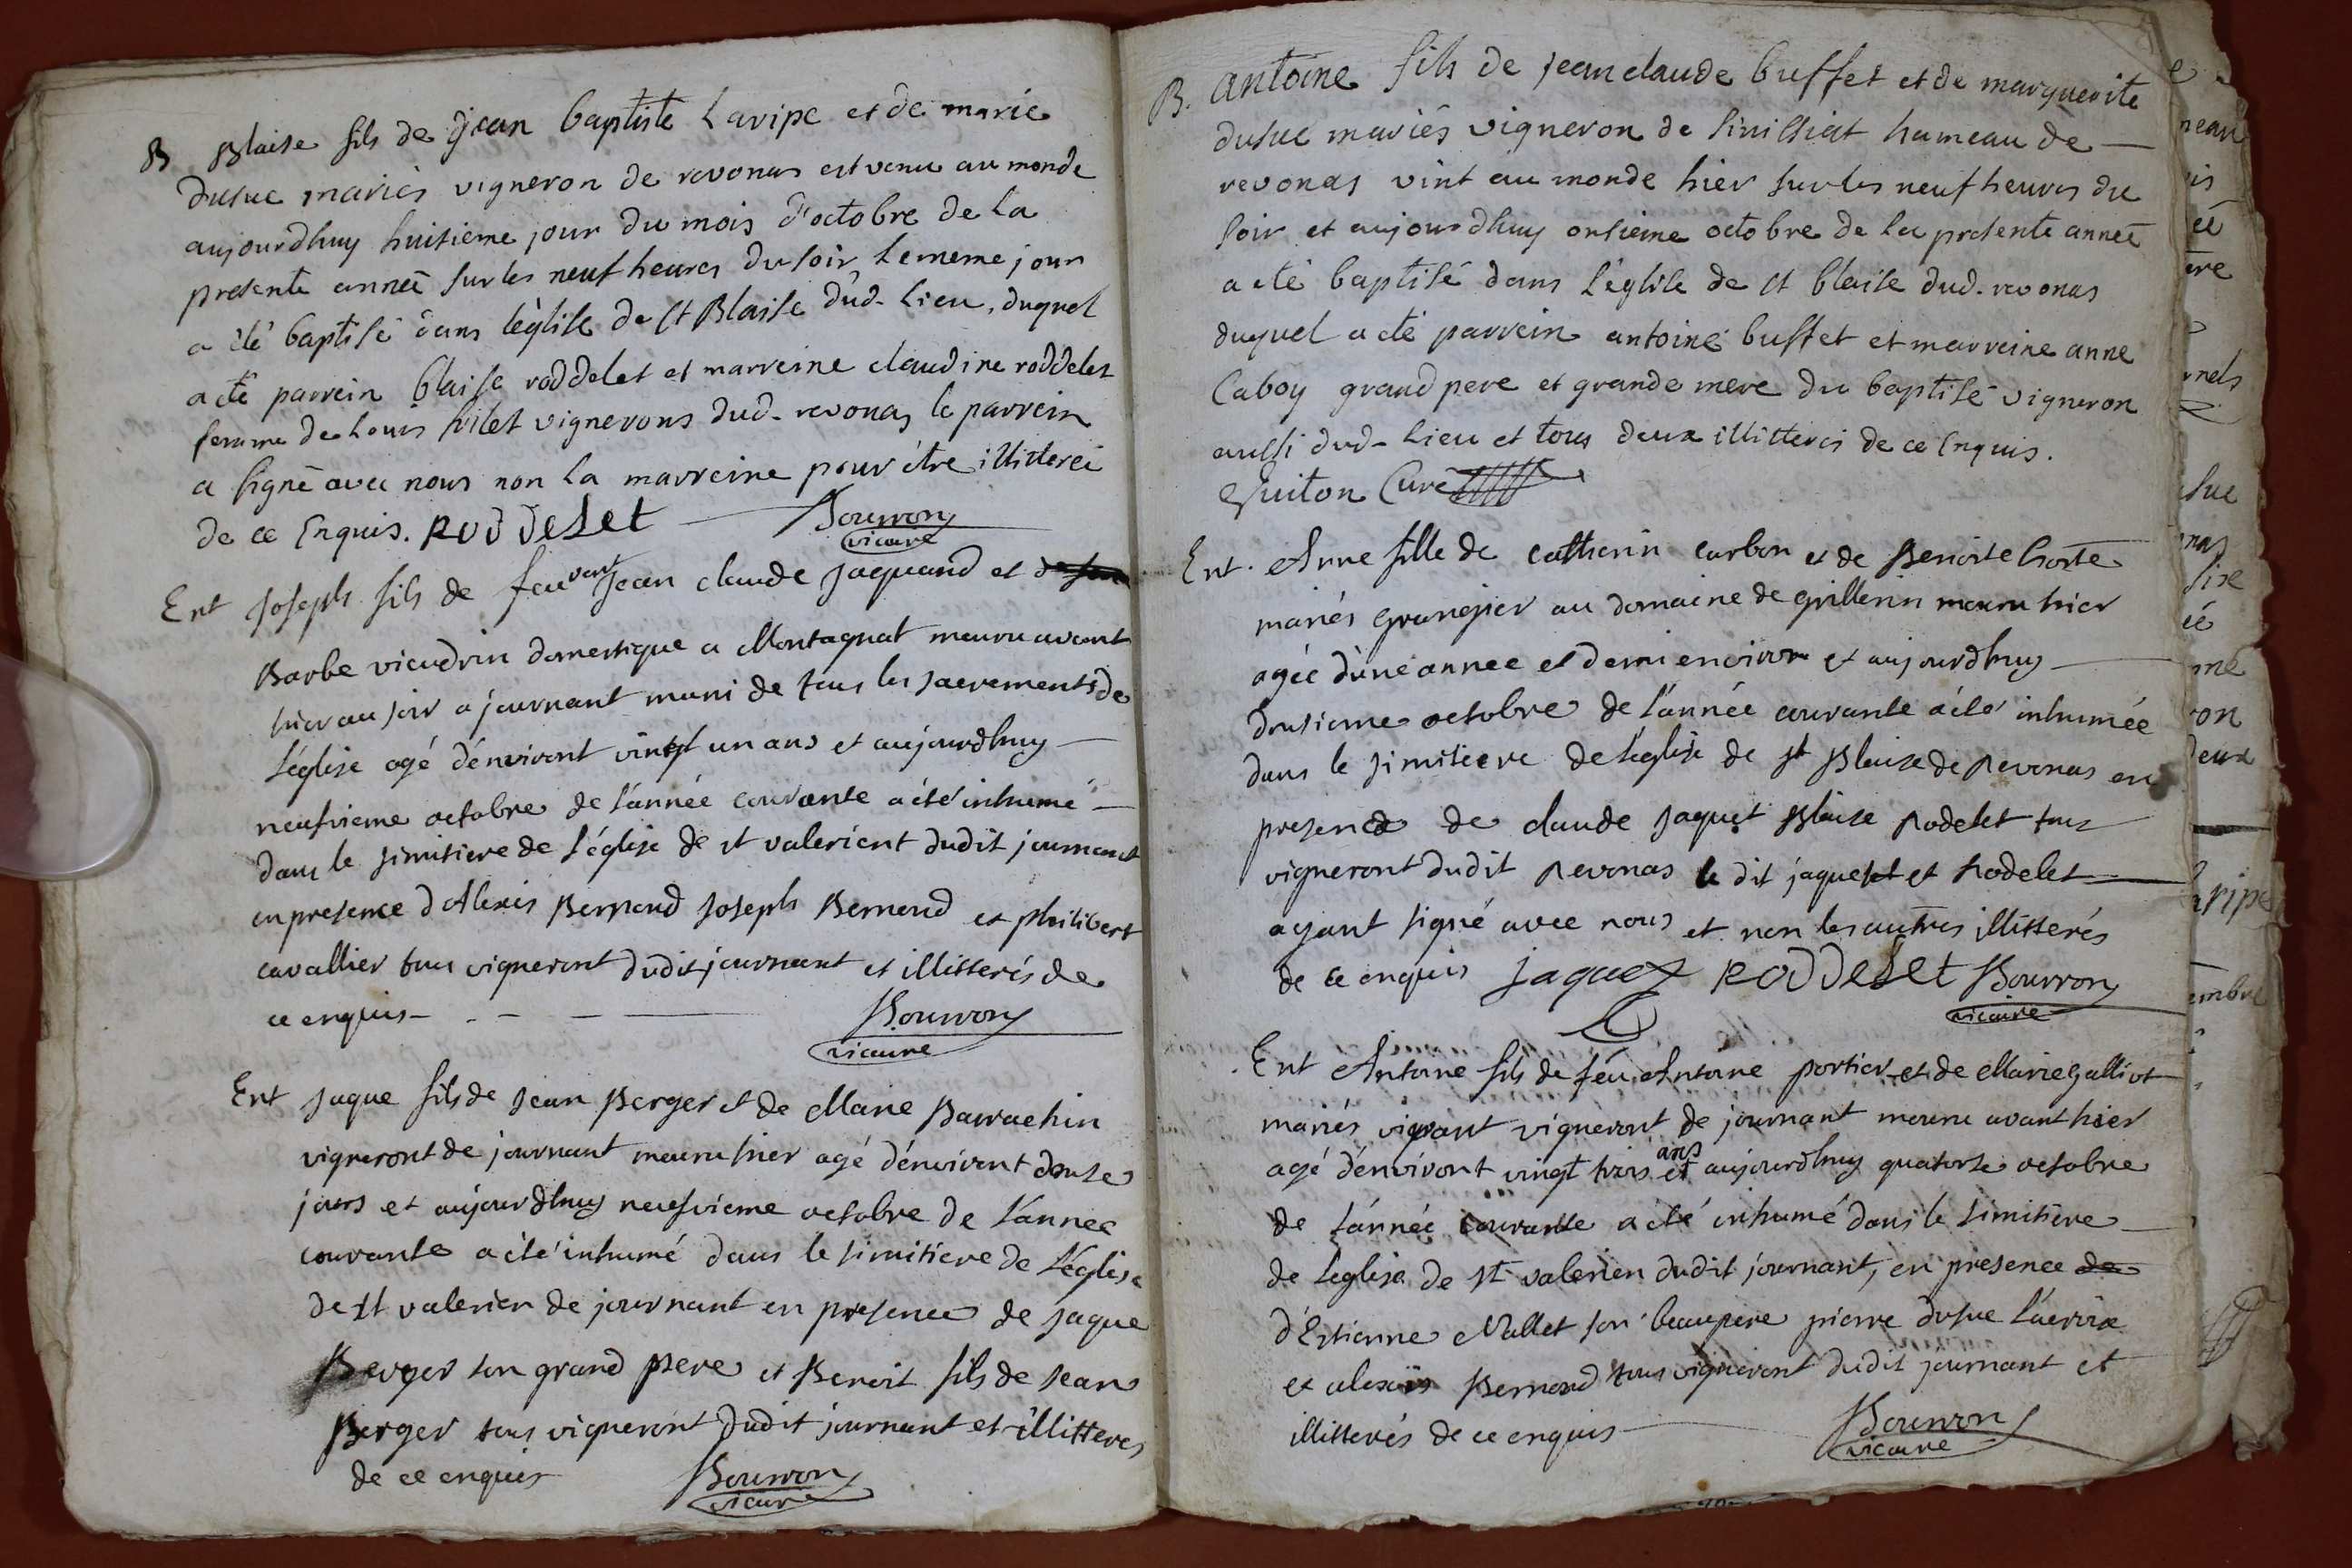 B Blaise fils de Jean baptiste Laripe et de marie
dusuc mariés vigneron de revonas est venu au monde
aujourdhuy huitieme jour du mois d'octobre de la
presente anneé sur les neuf heures du soir, le meme jour
a été baptisé dans léglise de st Blaise dud. lieu, duquel
a été parrein blaise roddelet et marreine claudine roddelet
femme de Louis vilet vignerons dud. revonas le parrein
a signé avec nous non la marreine pour être illitereé
de ce Enquis. RODDELET Bourron
vicaire
Ent Joseph fils de feu vent Jean claude Jaquand et de
Barbe vieudrin domestique a Montagnat mouru avant
hier au soir a journant muni de tous les sacrements de
l'église agé d'environt vingt un ans et aujourdhuy
neufvieme octobre de l'année courante a été inhumé
dans le simitiere de l'église de st valerient dudit journant
en presence d'Alexis Bernard Joseph Bernard et philibert
cavallier tous vigneront dudit journant et illitterés de
ce enquis Bourron
vicaire
Ent Jaque fils de Jean Berger et de Marie Barrachin
vigneront de journant mouru hier agé d'environt douse
jours et aujourdhuy neufvieme octobre de l'annee
courante a été inhumé dans le simitiere de l'église
de st valerien de journant en presence de Jaque
Berger son grand pere et Benoit fils de Jean
Berger tous vigneront dudit journant et illitteres
de ce enquis Bourron
vicaire
B. antoine fils de jean claude buffet et de marguerite
dusuc mariés vigneron de Sinissiat hameau de
revonas vint au monde hier sur les neuf heures du
soir et aujourdhuy onsieme octobre de la presente anneé
a été baptisé dans l'église de st blaise dud. revonas
duquel a été parrein antoine buffet et marreine anne
Caboy grand pere et grande mere du baptisé vigneron
aussi dud. lieu et tous deux illitterés de ce Enquis.
Guiton Curé
Ent. Anne fille de catherin carbon et de Benoite
mariés grangier au domaine de grillerin mouru hier
agée d'une annee et demi environ et aujourdhuy
dousieme octobre de l'année courante a été inhumée
dans le simitiere de l'église de st Blaise de Revonas en
presence de claude Jaquet Blaise Rodelet tous
vigneront dudit Revonas le dit jaquet et Rodelet
ayant signé avec nous et non les autres illitterés
de ce enquis jaquet RODDELET Bourron
vicaire
Ent Antoine fils de feu Antoine portier et de Marie Galliot
mariés vivant vigneront de journant mouru avant hier
agé d'environt vingt trois ans et aujourdhuy quatorse octobre
de l'année courante a été inhumé dans le simitiere
de l'eglise de st valerien dudit journant, en presence de
d'Estienne Mallet son beaupere pierre dusuc Lacroix
et alexis Bernard tous vigneront dudit journant et
illitterés de ce enquis Bourron
vicaire